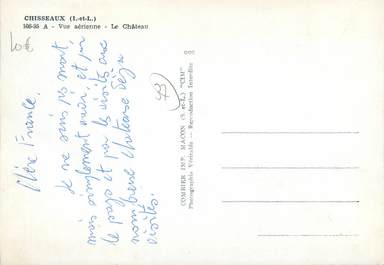 CHISSEAUX (I.-et-L.)
166-35 A - Vue aérienne - Le Château
10€
37
Chère France.
Je ne suis pas mort,
mais simplement ravi, et par
le pays et par les visites aux
nombreux chateaux déjà
visités.
COMBIER IMP. MACON (S.-et-L.) "CIM"
Photographie Véritable - Reproduction Interdite